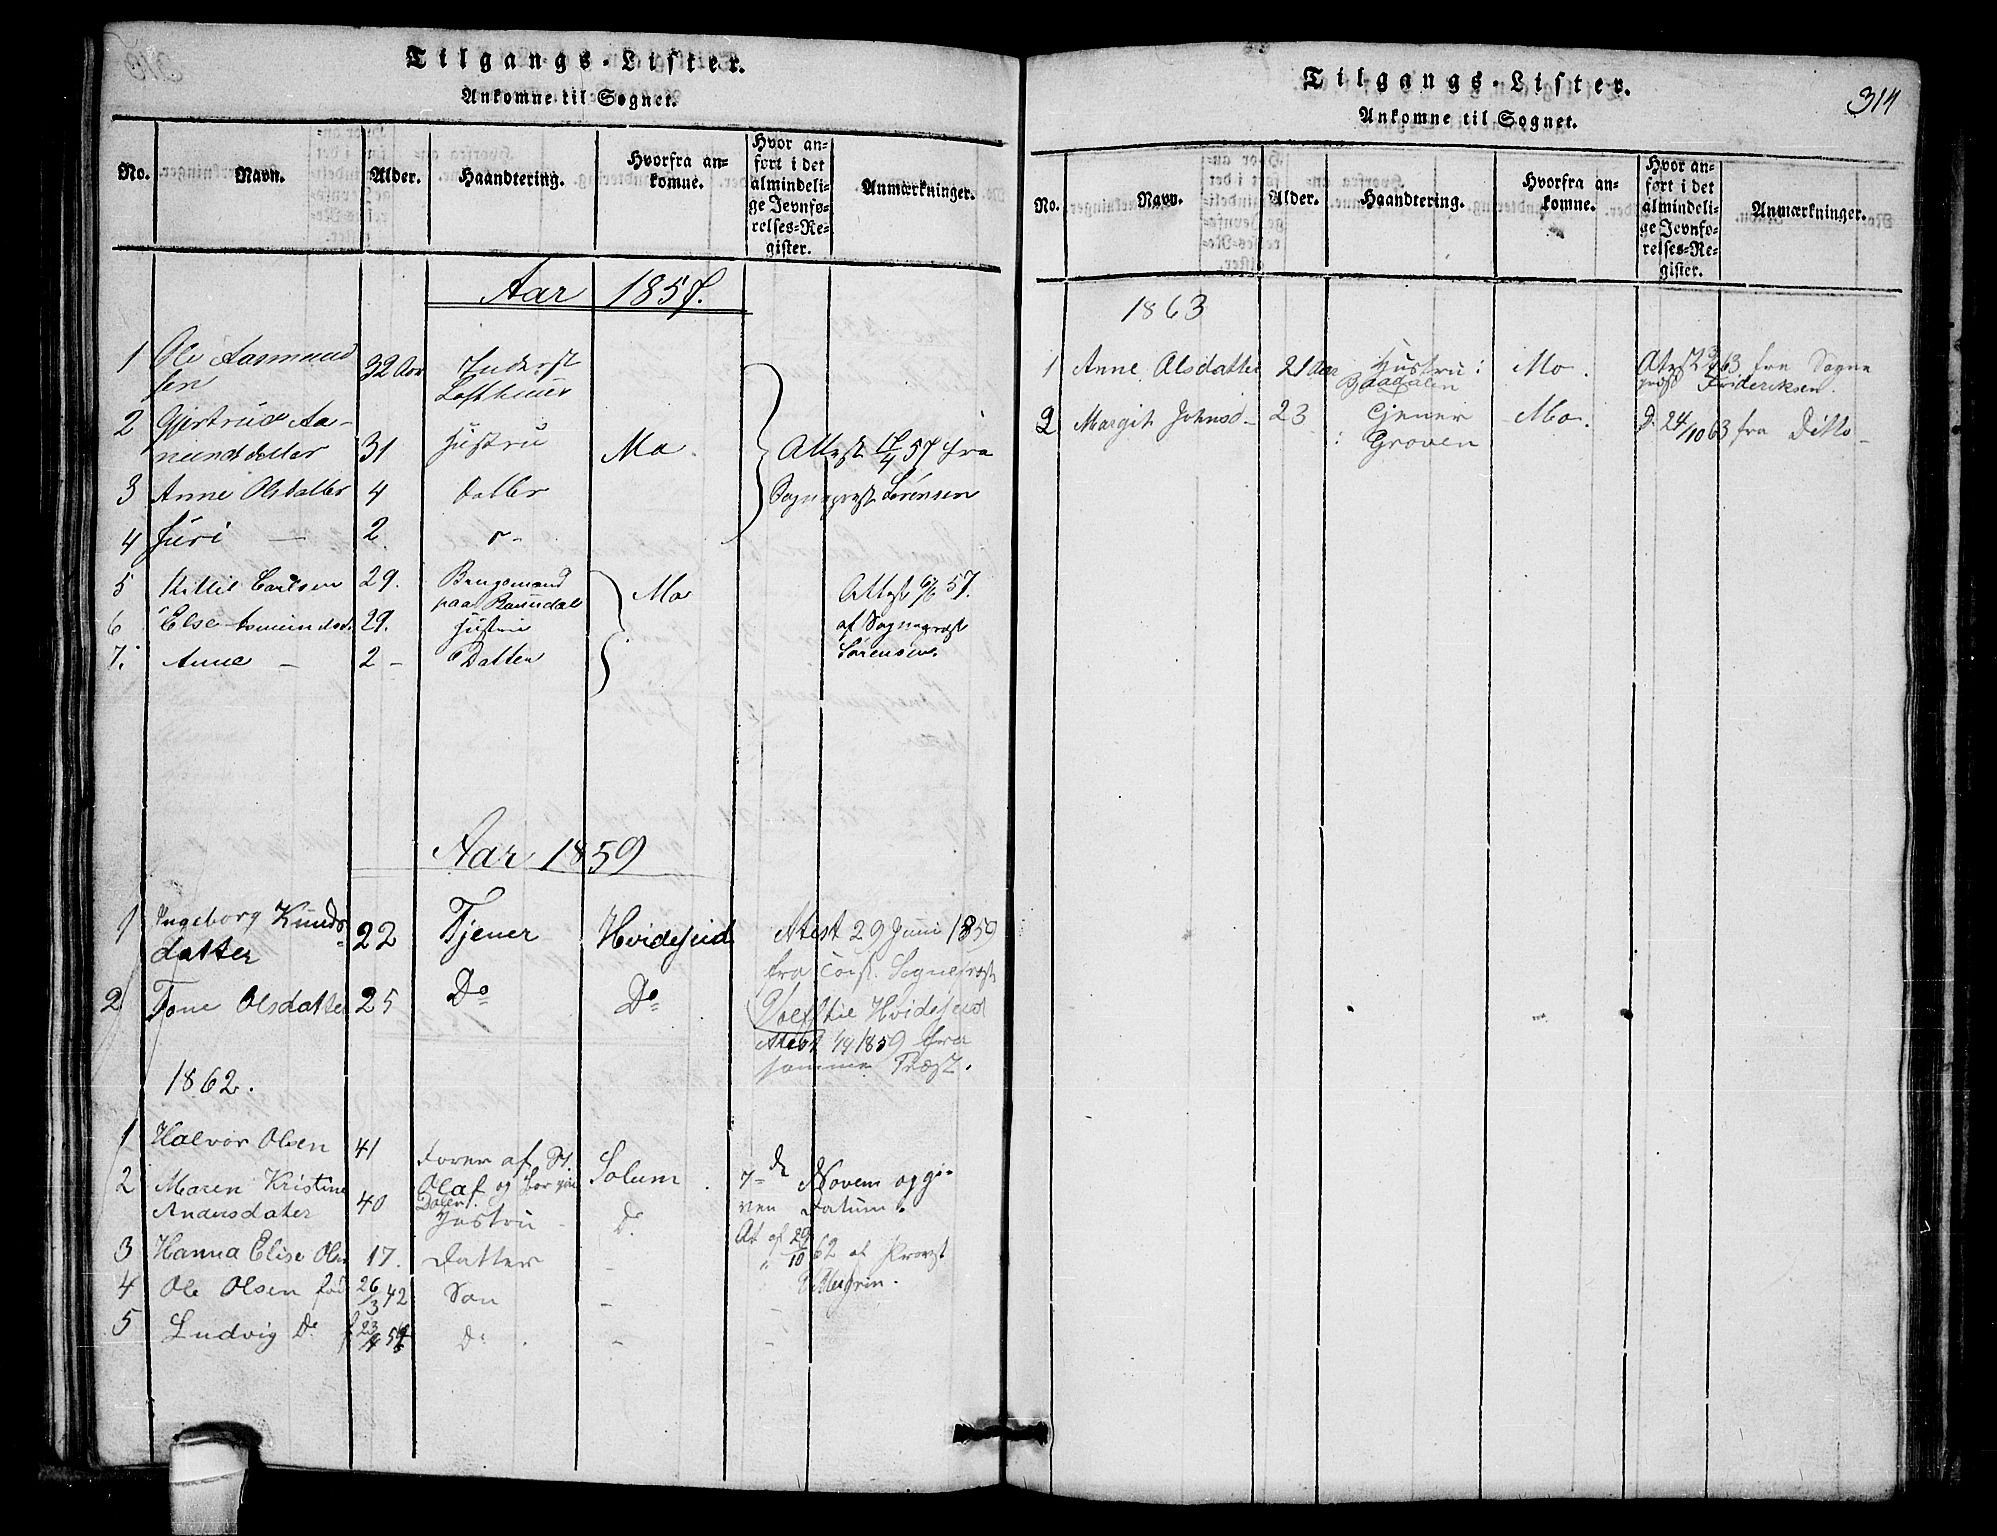 Tilgangs-Lister.
Ankomne til Sognet.
No. Navn. Alder. Haandtering. Hvorfra ankomne. Hvor anført i det almindelige Jevnførelses-Register. Anmærkninger.
Aar 1857.
1 Ole Aasmundsen 32 Aar Inderst Lofthuus
2 Gjertrud Aamundsdatter 31 Hustru Mo.
Attest 57 fra Sognepræst Sørensen
3 Anne Olsdatter 4 Datter
4 Juri — 2.
5 Kittil Carlsen 29. Brugsmand paa Mo Attest 57.
6 Else Asmundsd. 29. Hustru af Sognepræst
7. Anne — 2 — Datter Sørensen.
Aar 1859
1 Ingeborg Knudsdatter 22 Tjener Hvideseid Atest 29 Juni 1859
fra Sognepræst
2 Tone Olsdatter 25 Do Do til Hvideseid
Atest 1859 fra
samme Præst.
1862.
1 Halvor Olsen 41 Fører af St. Olaf og Solum Novem opgi-
2 Maren Kristine Andersdater 40 Hustru Do ven Datum.
At af 29/10 62 af Provst
3 Hanna Elise Ols 17. Datter —
4 Ole Olsen fød 26/3 42 Søn —
5 Ludvig Do f 23 Do —
Tilgangs-Lister.
314
Ankomne til Sognet.
No. Navn. Alder. Haandtering. Hvorfra ankomne. Hvor anført i det almindelige Jevnførelses-Register. Anmærkninger.
1863
1 Anne Olsdatter 21 Aar Hustru: Mo. Atest 63 fra Sogne
Baadalen præst Frideriksen
2 Margit Johnsd— 23 Tjener Mo. D. 24/10 63 fra Ditto—
: Groven